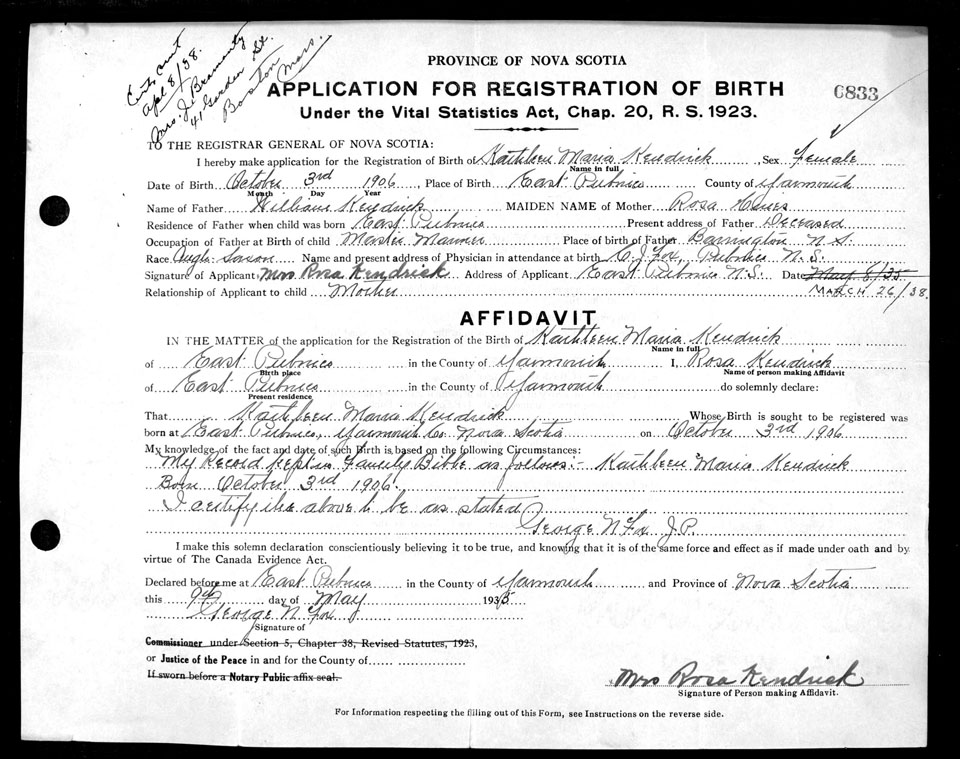 Certs sent
Apl 8/38.
Mrs. J.
41 Garden St.
Boston
Mass.
PROVINCE OF NOVA SCOTIA
APPLICATION FOR REGISTRATION OF BIRTH
6833
Under the Vital Statistics Act, Chap. 20, R. S. 1923.
TO THE REGISTRAR GENERAL OF NOVA SCOTIA:
I hereby make application for the Registration of Birth of Kathleen Maria Kendrick, Sex Female
Name in full
Date of Birth October 3rd 1906, Place of Birth East Pubnico County of Yarmouth
Month Day Year
Name of Father William Kendrick MAIDEN NAME of Mother Rosa
Residence of Father when child was born East Pubnico Present address of Father Deceased
Occupation of Father at Birth of child Master Mariner Place of birth of Father Barrington N S.
Race Anglo Saxon Name and present address of Physician in attendance at birth C. J. Fox, Pubnico N. S.
Signature of Applicant Mrs Rosa Kendrick Address of Applicant East Pubnico N.S. Date May 8/35
Relationship of Applicant to child Mother MARCH 26/38.
AFFIDAVIT
IN THE MATTER of the application for the Registration of the Birth of Kathleen Maria Kendrick
Name in full
of East Pubnico in the County of Yarmouth I, Rosa Kendrick
Birth place Name of person making Affidavit
of East Pubnico in the County of Yarmouth do solemnly declare:
Present residence
That Kathleen Maria Kendrick Whose Birth is sought to be registered was
born at East Pubnico, Yarmouth Co. Nova Scotia on October 3rd 1906
My knowledge of the fact and date of such Birth is based on the following Circumstances:
My Record Kept in Family Bible as follows:- Kathleen Maria Kendrick
Born October 3rd 1906.
I certify the above to be as stated
George N Fox J.P.
I make this solemn declaration conscientiously believing it to be true, and knowing that it is of the same force and effect as if made under oath and by
virtue of The Canada Evidence Act.
Declared before me at East Pubnico in the County of Yarmouth and Province of Nova Scotia
this 9th day of May 1935
George N. Fox
Signature of
Commissioner under Section 5, Chapter 38, Revised Statutes, 1923,
or Justice of the Peace in and for the County of
If sworn before a Notary Public affix seal.
Mrs Rosa Kendrick
Signature of Person making Affidavit.
For Information respecting the filling out of this Form, see Instructions on the reverse side.